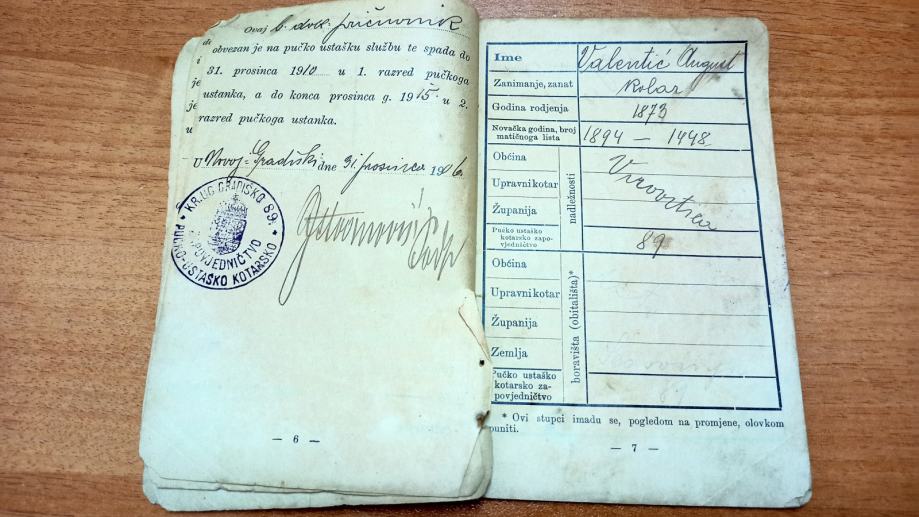 Ovaj b. dobr. pričuvnik
obvezan je na pučko ustašku službu te spada do
31. prosinca 1910 u 1. razred pučkoga
ustanka, a do konca prosinca g. 1915. u 2.
razred pučkoga ustanka.
U Novoj-Gradiški dne 31. prosinca 1906
KR. UG. GRADIŠKO 89.
PUČKO-USTAŠKO KOTARSKO
ZAPOVJEDNIČTVO
— 6 —
Ime Valentić August
Zanimanje, zanat Kolar
Godina rodjenja 1873
Novačka godina, broj matičnoga lista 1894 — 1448
nadležnosti
Općina
Upravni kotar Virovitica
Županija
Pučko ustaško kotarsko zapovjedničtvo 89
boravišta (obitališta)*
Općina
Upravni kotar
Županija
Zemlja
Pučko ustaško kotarsko zapovjedničtvo
* Ovi stupci imadu se, pogledom na promjene, olovkom
puniti.
— 7 —